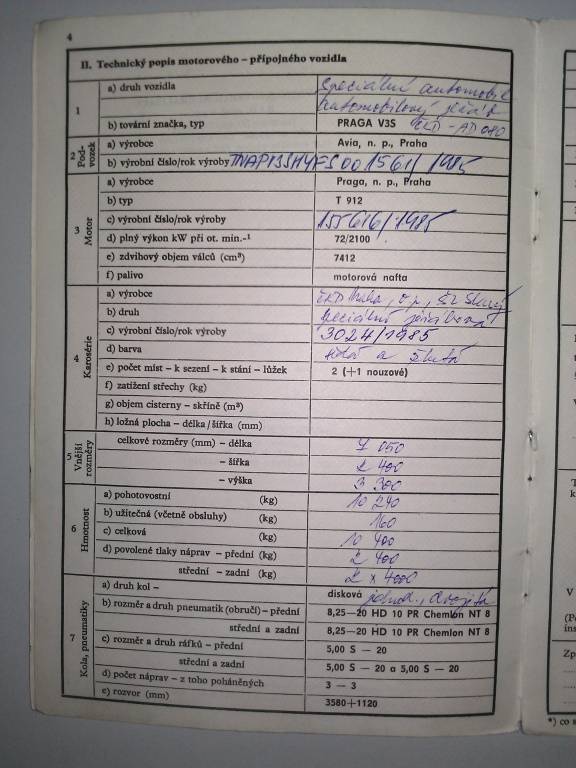 4
II. Technický popis motorového – přípojného vozidla
1
a) druh vozidla speciální automobil
automobilový jeřáb
b) tovární značka, typ PRAGA V3S ČKD – AD 080
2 Podvozek
a) výrobce Avia, n. p., Praha
b) výrobní číslo/rok výroby 1985
3 Motor
a) výrobce Praga, n. p., Praha
b) typ T 912
c) výrobní číslo/rok výroby 155616/1985
d) plný výkon kW při ot. min.-¹ 72/2100
e) zdvihový objem válců (cm³) 7412
f) palivo motorová nafta
4 Karosérie
a) výrobce ČKD Praha, o.p., Slaný
b) druh speciální jeřábová
c) výrobní číslo/rok výroby 3024/1985
d) barva a žlutá
e) počet míst – k sezení – k stání – lůžek 2 (+1 nouzové)
f) zatížení střechy (kg)
g) objem cisterny – skříně (m³)
h) ložná plocha – délka/šířka (mm)
5 Vnější rozměry
celkové rozměry (mm) – délka 050
– šířka 2 400
– výška 3 300
6 Hmotnost
a) pohotovostní (kg) 10 240
b) užitečná (včetně obsluhy) (kg) 160
c) celková (kg) 10 400
d) povolené tlaky náprav – přední (kg) 2 400
střední – zadní (kg) 2 x 4000
7 Kola, pneumatiky
a) druh kol – disková jednod., dvojitá
b) rozměr a druh pneumatik (obručí) – přední 8,25—20 HD 10 PR Chemlon NT 8
střední a zadní 8,25—20 HD 10 PR Chemlon NT 8
c) rozměr a druh ráfků – přední 5,00 S — 20
střední a zadní 5,00 S — 20 a 5,00 S — 20
d) počet náprav – z toho poháněných 3 — 3
e) rozvor (mm) 3580+1120
T
k
V
(Po
ins
Zp
*) co